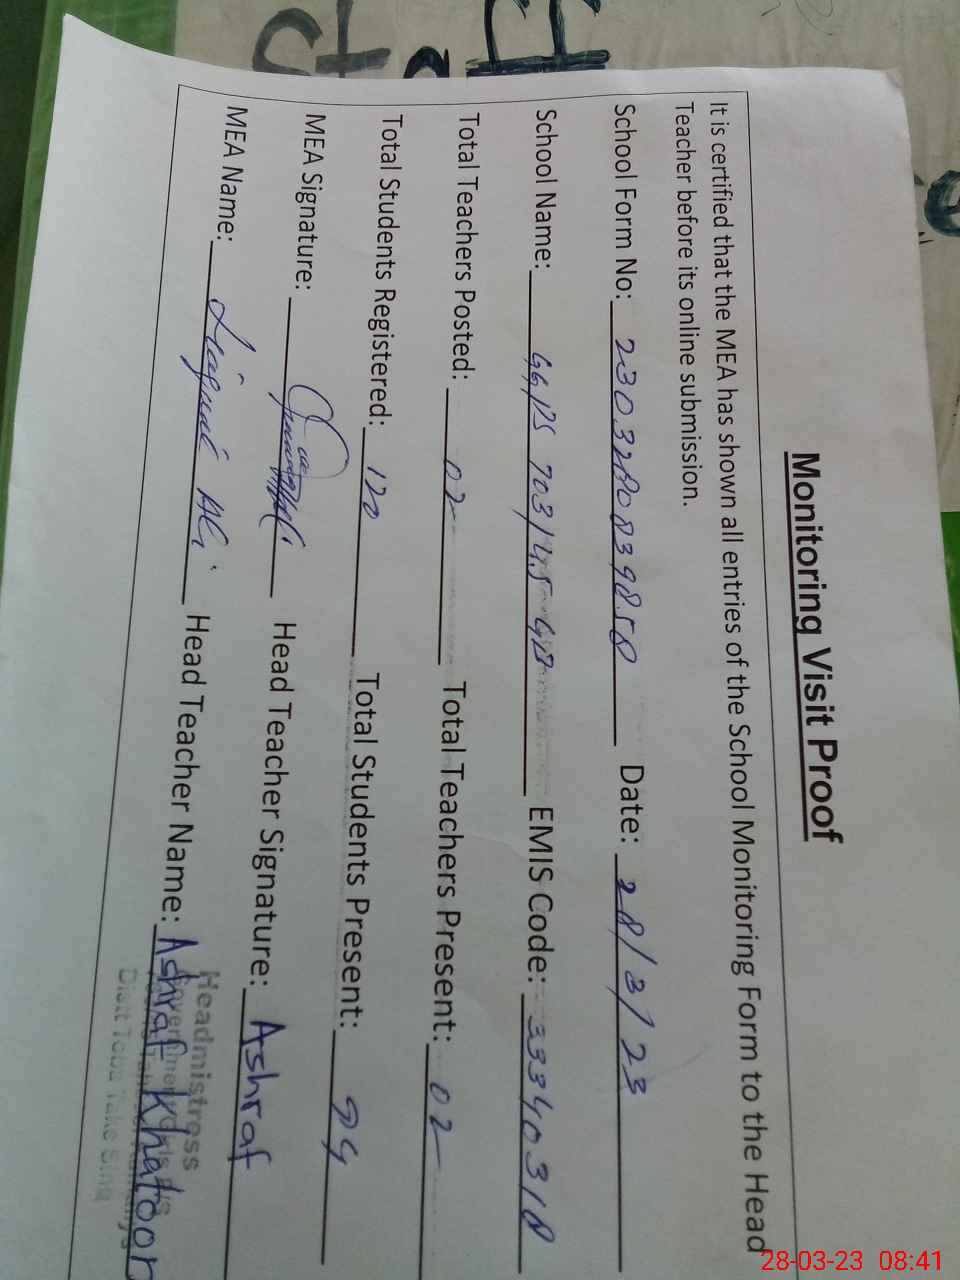 Monitoring Visit Proof
It is certified that the MEA has shown all entries of the School Monitoring Form to the Head
Teacher before its online submission.
School Form No: Date: 28/3/23
School Name: GGPS 703/45 GB EMIS Code: 33340318
Total Teachers Posted: 02 Total Teachers Present: 02
Total Students Registered: 120 Total Students Present: 94
MEA Signature: Head Teacher Signature: Ashraf
MEA Name: Liaquat Ali Head Teacher Name: Ashraf Khatoon
Headmistress
28-03-23 08:41